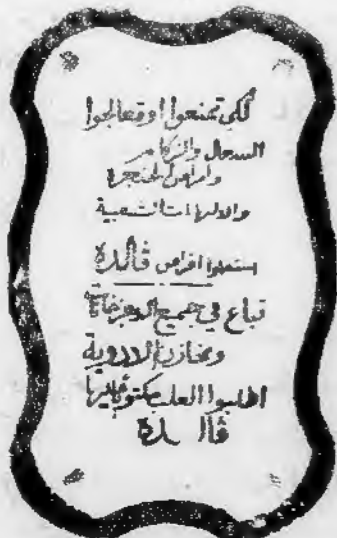 لكى تمنعوا او تعالجوا
السعال والزكام
وامراض الحنجرة
والالتهابات الشعبية
استعملوا اقراص ڤالدة
تباع في جميع الاجزخانات
ومخازن الادوية
اطلبوا العلب مكتوب عليها
ڤالدة